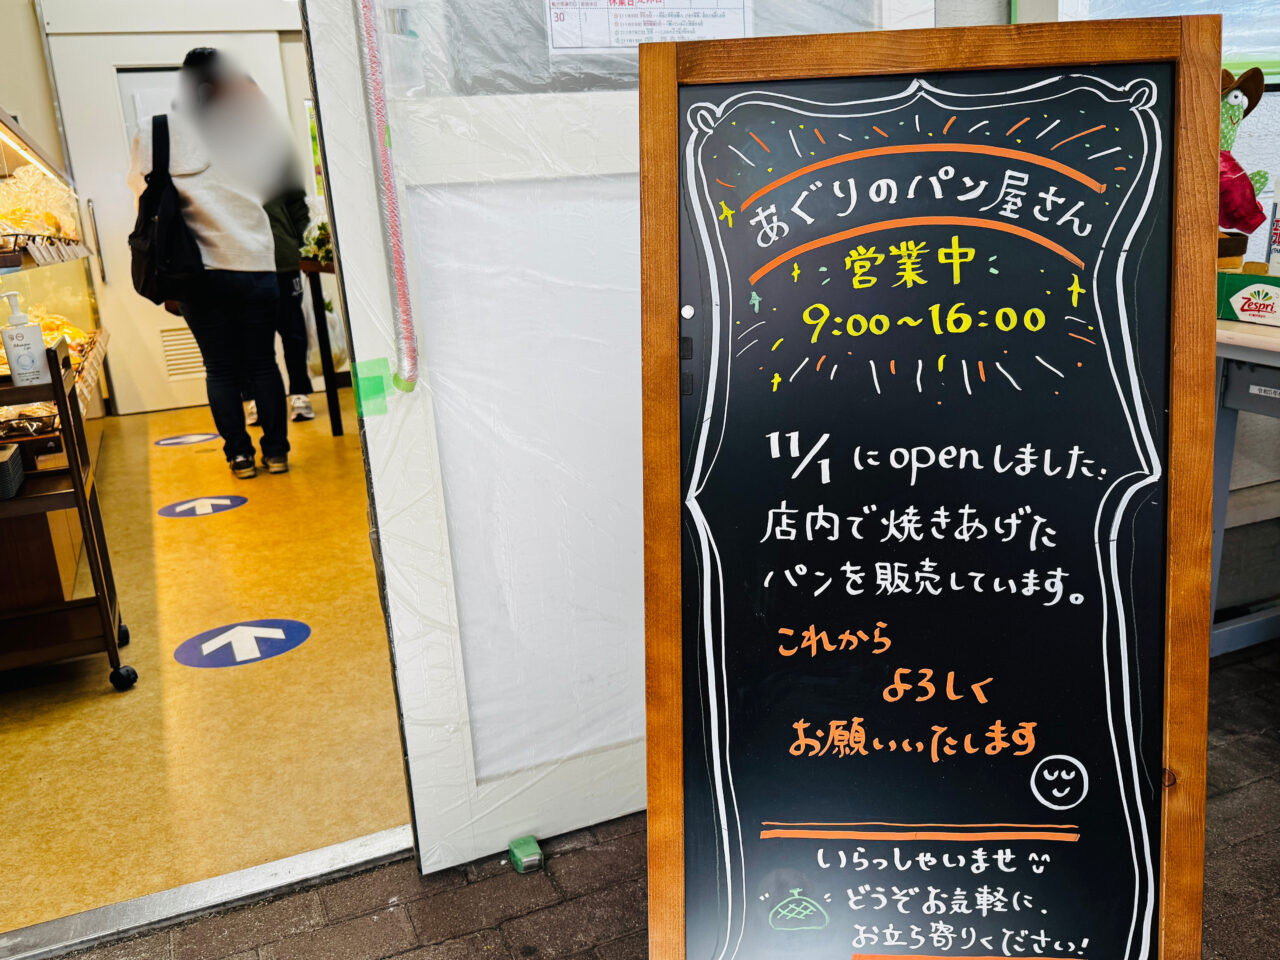 30
休業日
あぐりのパン屋さん
営業中
9:00～16:00
11/1にopenしました.
店内で焼きあげた
パンを販売しています。
これから
よろしく
お願いいたします
いらっしゃいませ
どうぞお気軽に、
お立ち寄りください!
Zespri